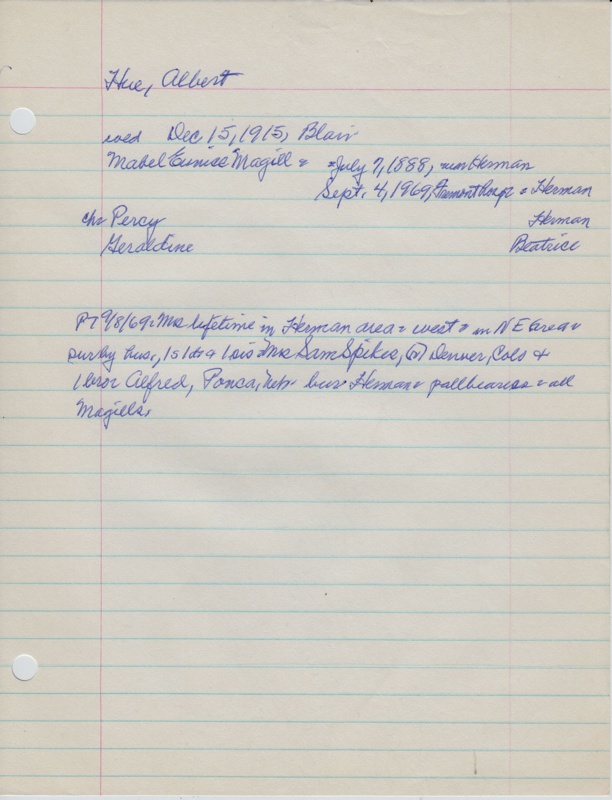 Hue, Albert
wed Dec 15, 1915, Blair
Mabel Eunise Magill = *July 7, 1888, Herman
Sept. 4, 1969, Fremont Herman
ch= Percy Herman
Geraldine Beatrice
PT 9/8/69= Mrs lifetime in Herman area= west = in NE area=
surv by hus, 1s 1da 1 sis=Mrs Sam Spikes, Denver, Colo +
1 bro= Alfred, Ponca, Neb= bur Herman= pallbearers= all
Magills,